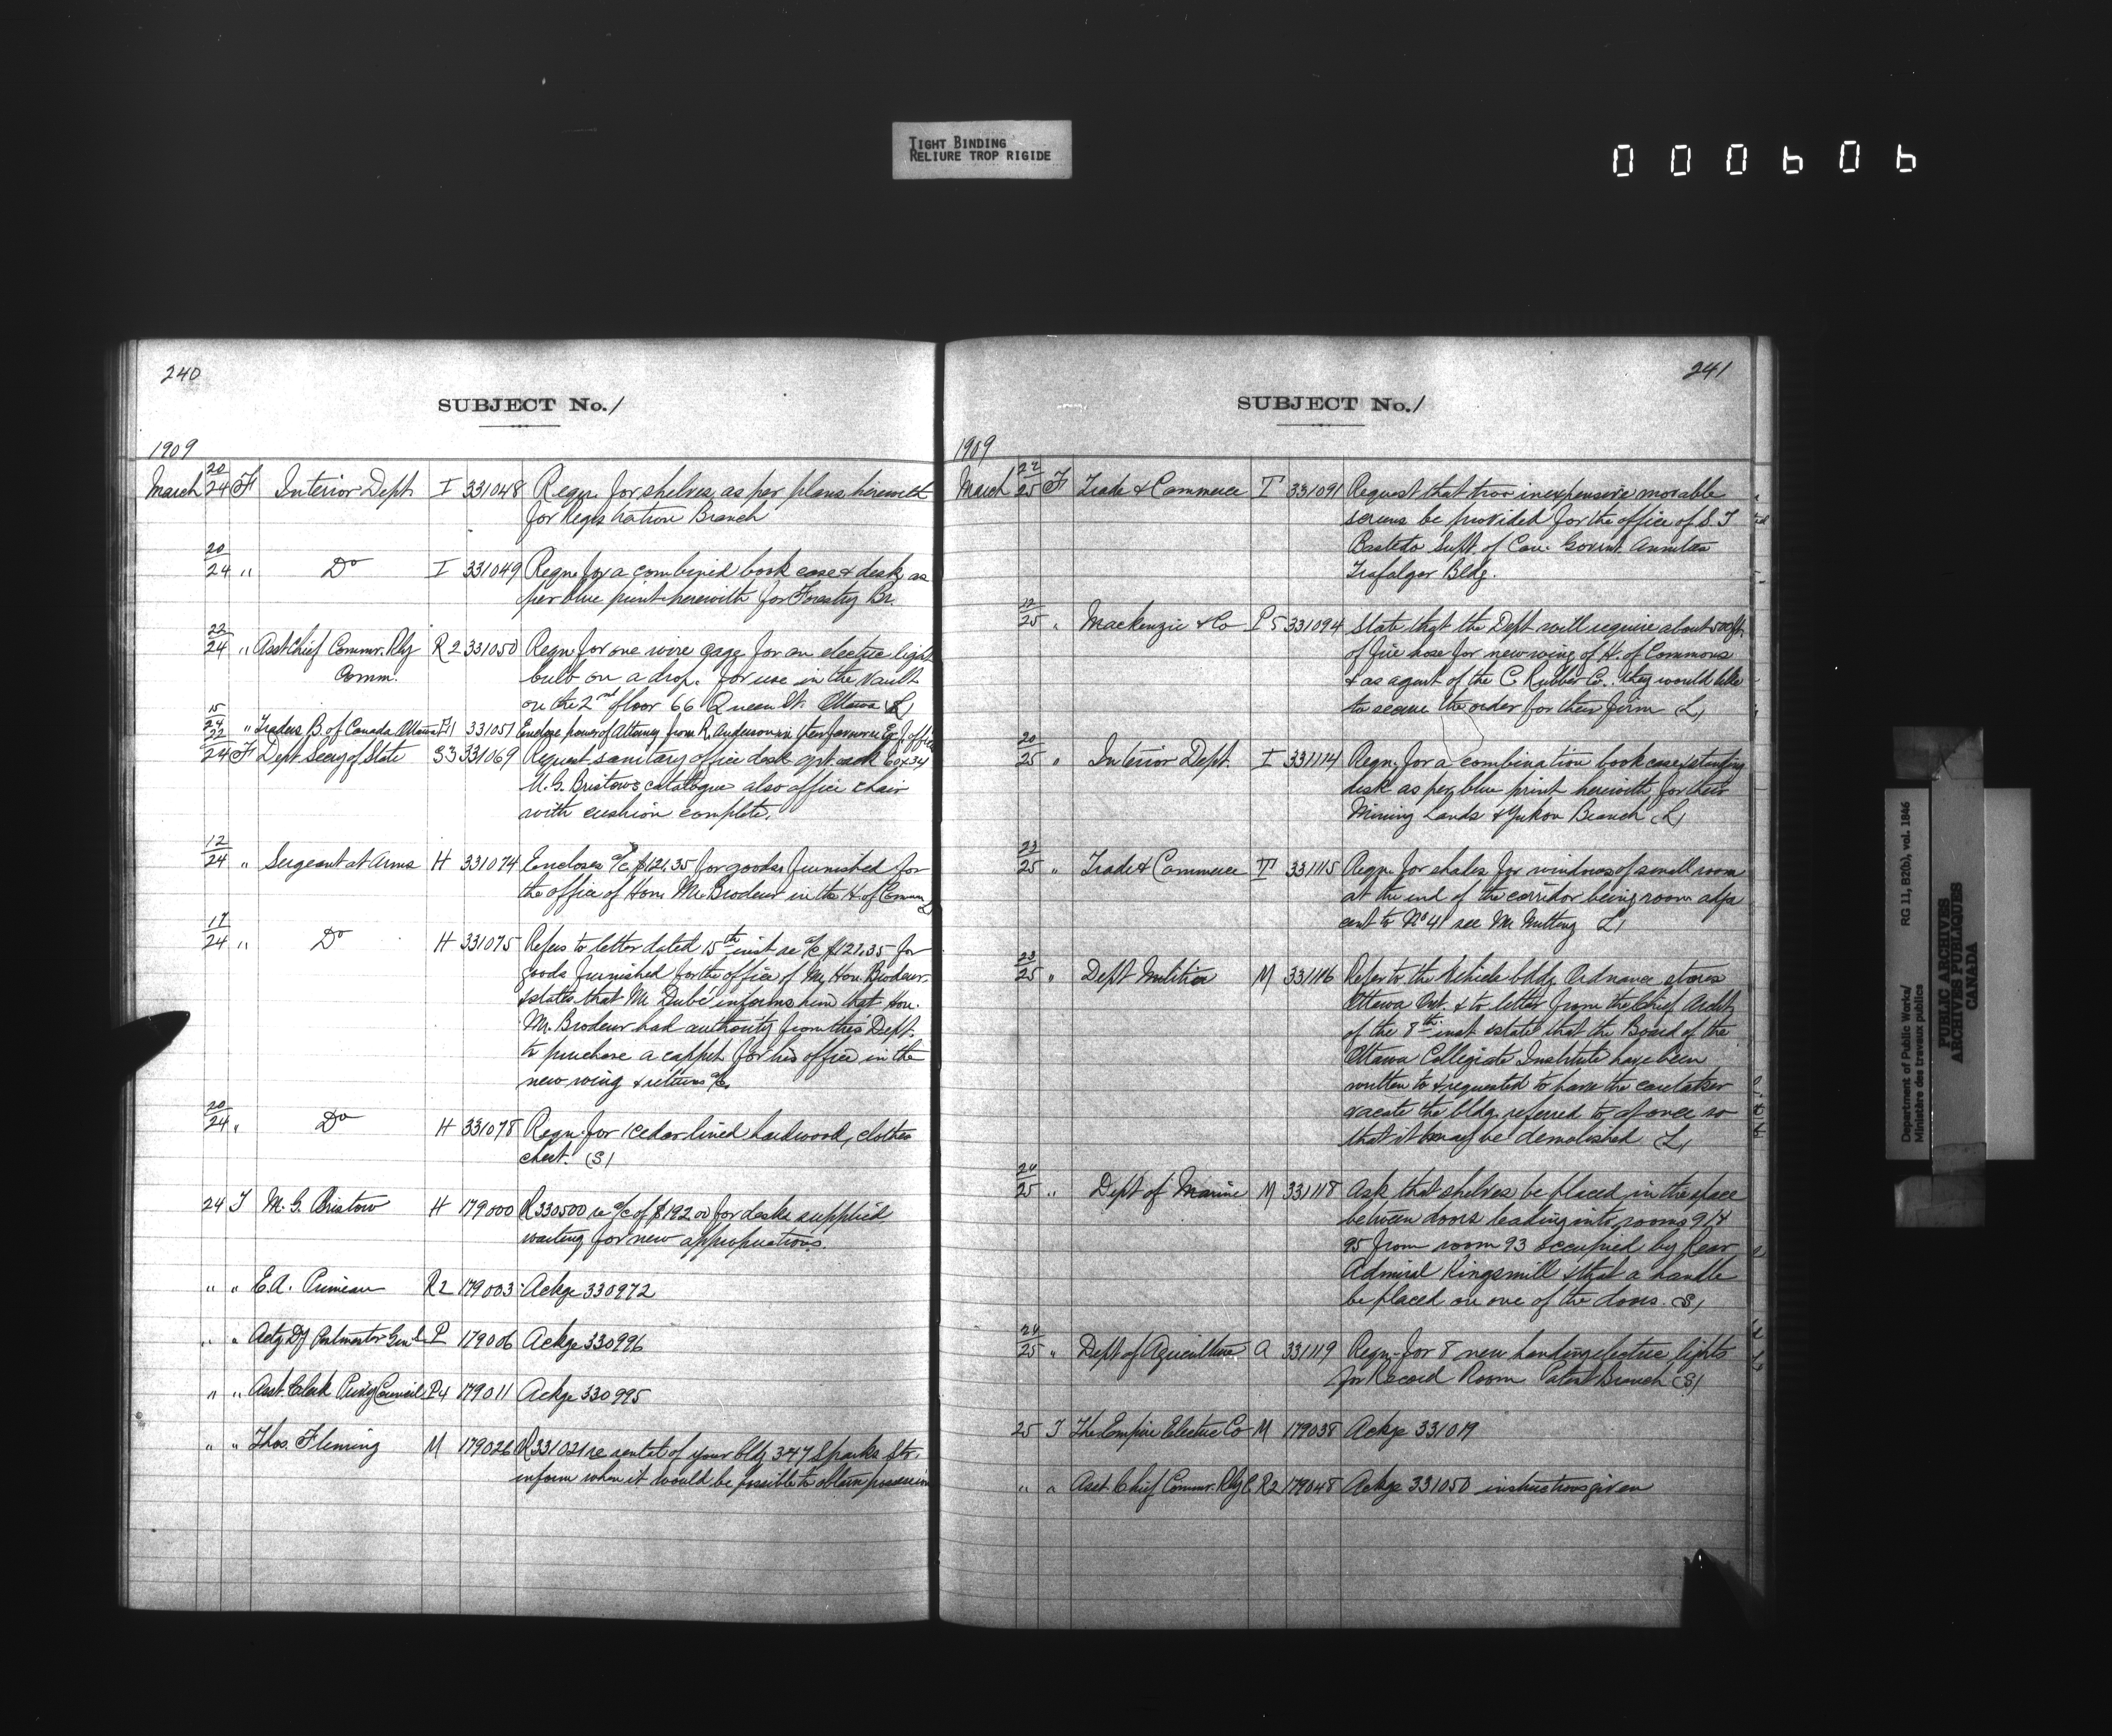 TIGHT BINDING
RELIURE TROP RIGIDE
000606
240
SUBJECT No. 1
1909
March 20/24 F Interior Dept I 331048 Reqn. for shelves as per plans herewith
for Registration Branch
20/24 " Do I 331049 Reqn. for a combined book case & desk as
per blue print herewith for Forestry Br.
22/24 " Asst Chief Commr. Rly R2 331050 Reqn for one wire gage for an electric light
Comm. bulb on a drop. for use in the vault
on the 2nd floor 66 Queen St. Ottawa (L)
15/24 " Traders B. of Canada Ottawa 331051 Enclose power of Attorney from R. Anderson in their favour re
22/24 F Dept Secy of State S3 331069 Request sanitary office desk 60x34
M. G. Bristows catalogue also office chair
with cushion complete.
12/24 " Sergeant at Arms H 331074 Encloses a/c $121.35 for goods furnished for
the office of Hon. Mr. Brodeur in the H. of Comm
17/24 " Do H 331075 Refers to letter dated 15th inst re a/c $121.35 for
goods furnished for the office of Mr. Hon. Brodeur.
& states that Mr. Dubé informs him that Hon.
Mr. Brodeur had authority from this Dept.
to purchase a carpet for his office in the
new wing & returns a/c.
20/24 " Do H 331078 Reqn. for 1 cedar lined hardwood, clothes
chest. (S)
24 T M. G. Bristow H 179000 R330500 re a/c of $192.00 for desks supplied
waiting for new appropriations.
" " E. A. Primeau R2 179003 Ackge 330972
" " Actg Dy Postmaster Genl. P 179006 Ackge 330996
" " Asst. Clerk Privy Council P4 179011 Ackge 330995
" " Thos. Fleming M 179026 R331021 re rental of your bldg 347 Sparks Str.
inform when it would be possible to obtain possession
241
SUBJECT No. 1
1909
March 22/25 F Trade & Commerce T 331091 Request that two inexpensive movable
screens be provided for the office of S. T
Bastedo Supt. of Can: Govmt. Annuities
Trafalgar Bldg.
25 " Mackenzie & Co P5 331094 State that the Dept will require about 500 ft.
of fire hose for new wing of H. of Commons
& as agent of the C. Rubber Co. they would like
to secure the order for their firm (L)
20/25 " Interior Dept. I 331114 Reqn. for a combination book case & standing
desk as per blue print herewith for their
Mining Lands & Yukon Branch (L)
23/25 " Trade & Commerce T 331115 Reqn. for shades for windows of small room
at the end of the corridor being room adja
cent to No 41 see Mr. Nutting (L)
23/25 " Dept Militia M 331116 Refer to the Vehicle bldg Ordnance stores
Ottawa Ont. & to letter from the Chief Archt.
of the 8th inst & state that the Board of the
Ottawa Collegiate Institute have been
written to & requested to have the caretaker
vacate the bldg. referred to at once so
that it may be demolished (L)
24/25 " Dept of Marine M 331118 Ask that shelves be placed in the space
between doors leading into rooms 91 &
95 from room 93 occupied by Rear
Admiral Kingsmill & that a handle
be placed on one of the doors. (S)
24/25 " Dept of Agriculture A 331119 Reqn. for 8 new hanging electric lights
for Record Room Patent Branch (S)
25 T The Empire Electric Co M 179038 Ackge 331019
" " Asst. Chief Commr. Rly C R2 179048 Ackge 331050 instructions given
Department of Public Works/ RG 11, B2(b), vol. 1846
Ministère des travaux publics
PUBLIC ARCHIVES
ARCHIVES PUBLIQUES
CANADA